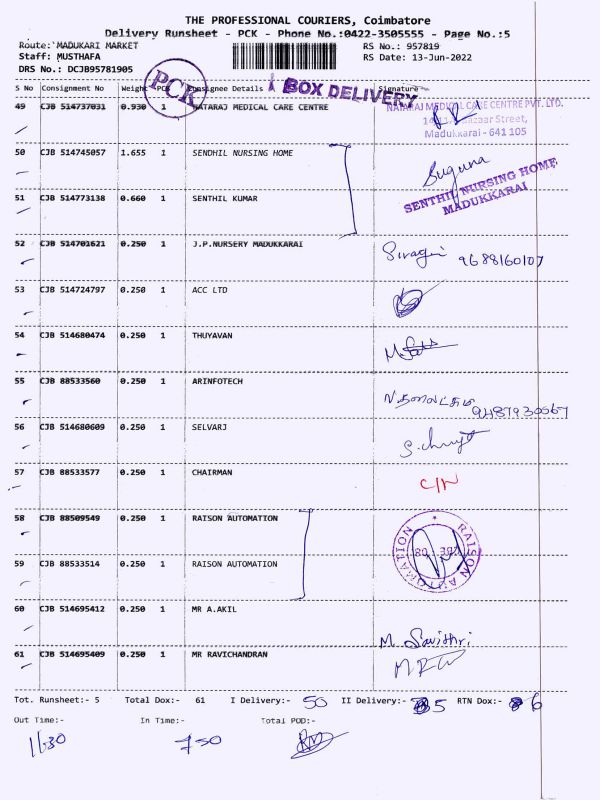 THE PROFESSIONAL COURIERS, Coimbatore
Delivery Runsheet - PCK - Phone No.:0422-3505555 - Page No.:5
Route: MADUKARI MARKET RS No.: 957819
Staff: MUSTHAFA RS Date: 13-Jun-2022
DRS No.: DCJB95781905
PCK
BOX DELIVERY
S No Consignment No Weight PCS Consignee Details Signature
49 CJB 514737031 0.930 1 NATARAJ MEDICAL CARE CENTRE
NATARAJ MEDICAL CARE CENTRE PVT. LTD.
Bazaar Street,
Madukkarai - 641 105
50 CJB 514745057 1.655 1 SENDHIL NURSING HOME
Suguna
SENTHIL NURSING HOME
MADUKKARAI
51 CJB 514773138 0.660 1 SENTHIL KUMAR
52 CJB 514701621 0.250 1 J.P.NURSERY MADUKKARAI
9688160107
53 CJB 514724797 0.250 1 ACC LTD
54 CJB 514680474 0.250 1 THUYAVAN
55 CJB 88533560 0.250 1 ARINFOTECH
9487930567
56 CJB 514680609 0.250 1 SELVARJ
57 CJB 88533577 0.250 1 CHAIRMAN
C/N
58 CJB 88509549 0.250 1 RAISON AUTOMATION
RAISON AUTOMATION
59 CJB 88533514 0.250 1 RAISON AUTOMATION
60 CJB 514695412 0.250 1 MR A.AKIL
M. Savithri
61 CJB 514695409 0.250 1 MR RAVICHANDRAN
Tot. Runsheet:- 5 Total Dox:- 61 I Delivery:- 50 II Delivery:- 5 RTN Dox:- 6
Out Time:- In Time:- Total POD:-
1630 750